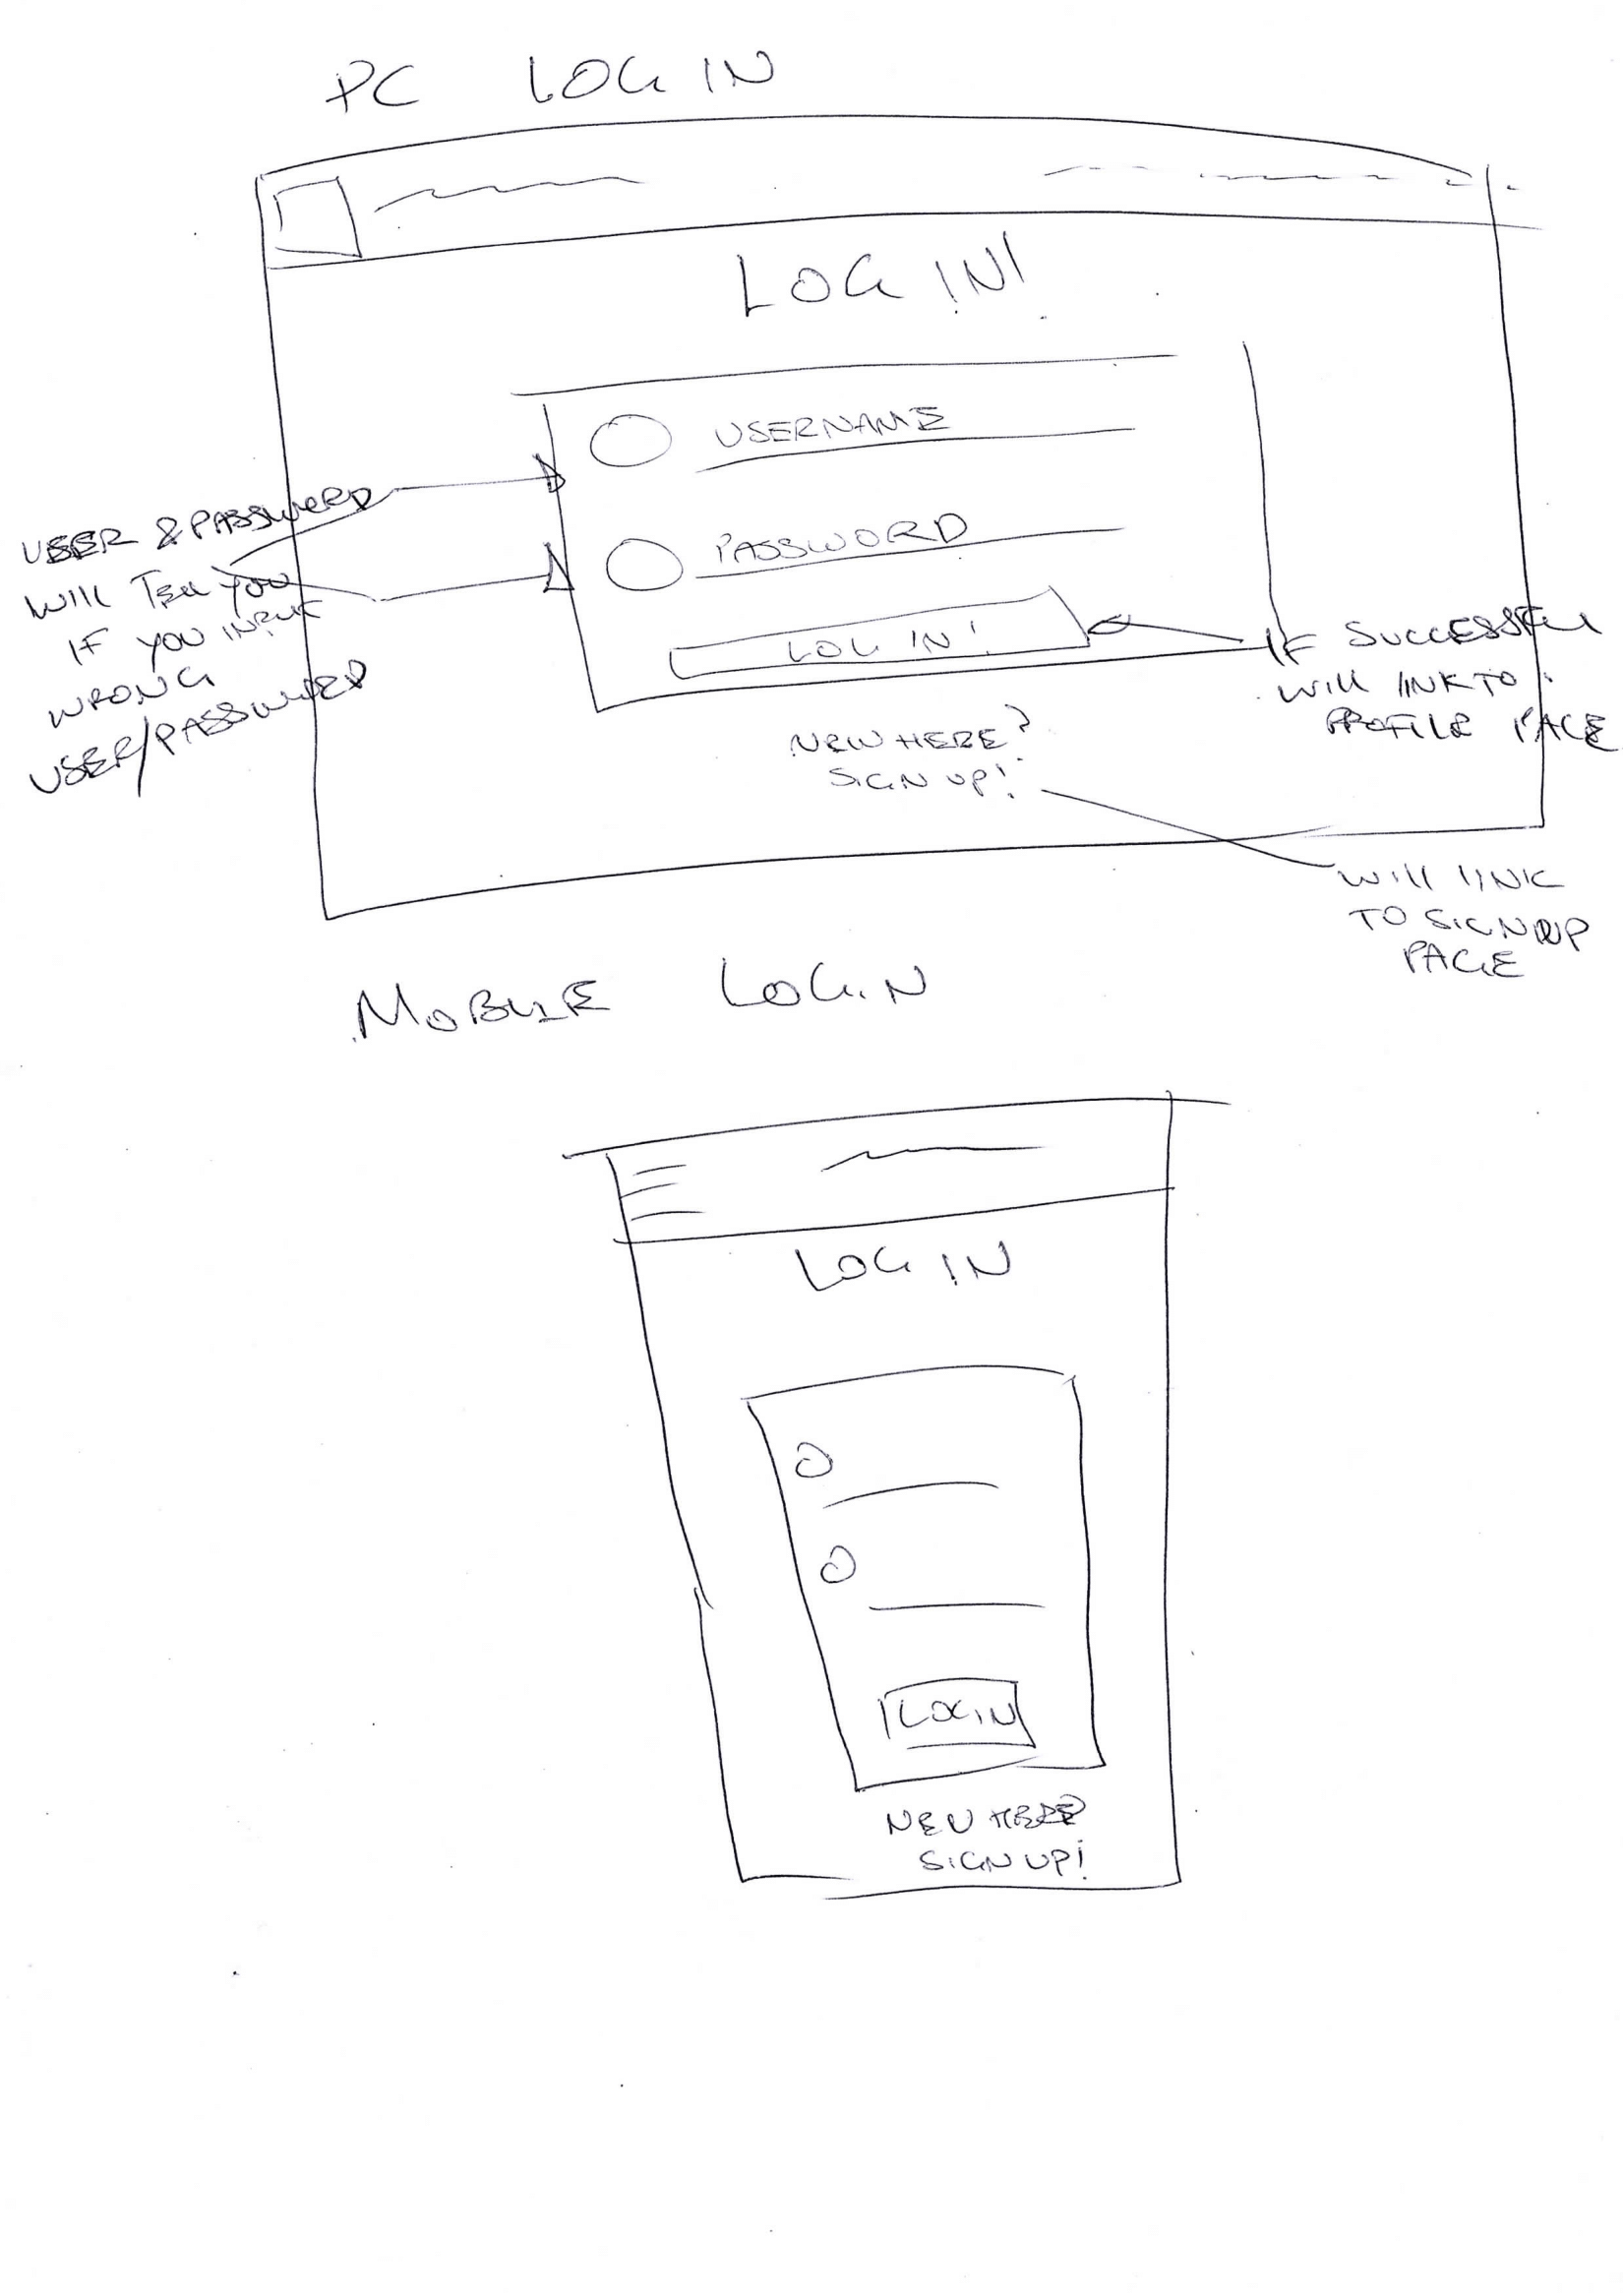 PC LOG IN
LOG IN!
USERNAME
PASSWORD
LOG IN!
NEW HERE?
SIGN UP!
USER & PASSWORD
WILL TELL YOU
IF YOU INPUT
WRONG
USER/PASSWORD
IF SUCCESSFUL
WILL LINK TO
PROFILE PAGE
WILL LINK
TO SIGNUP
PAGE
MOBILE LOGIN
LOG IN
LOGIN
NEW HERE?
SIGN UP!